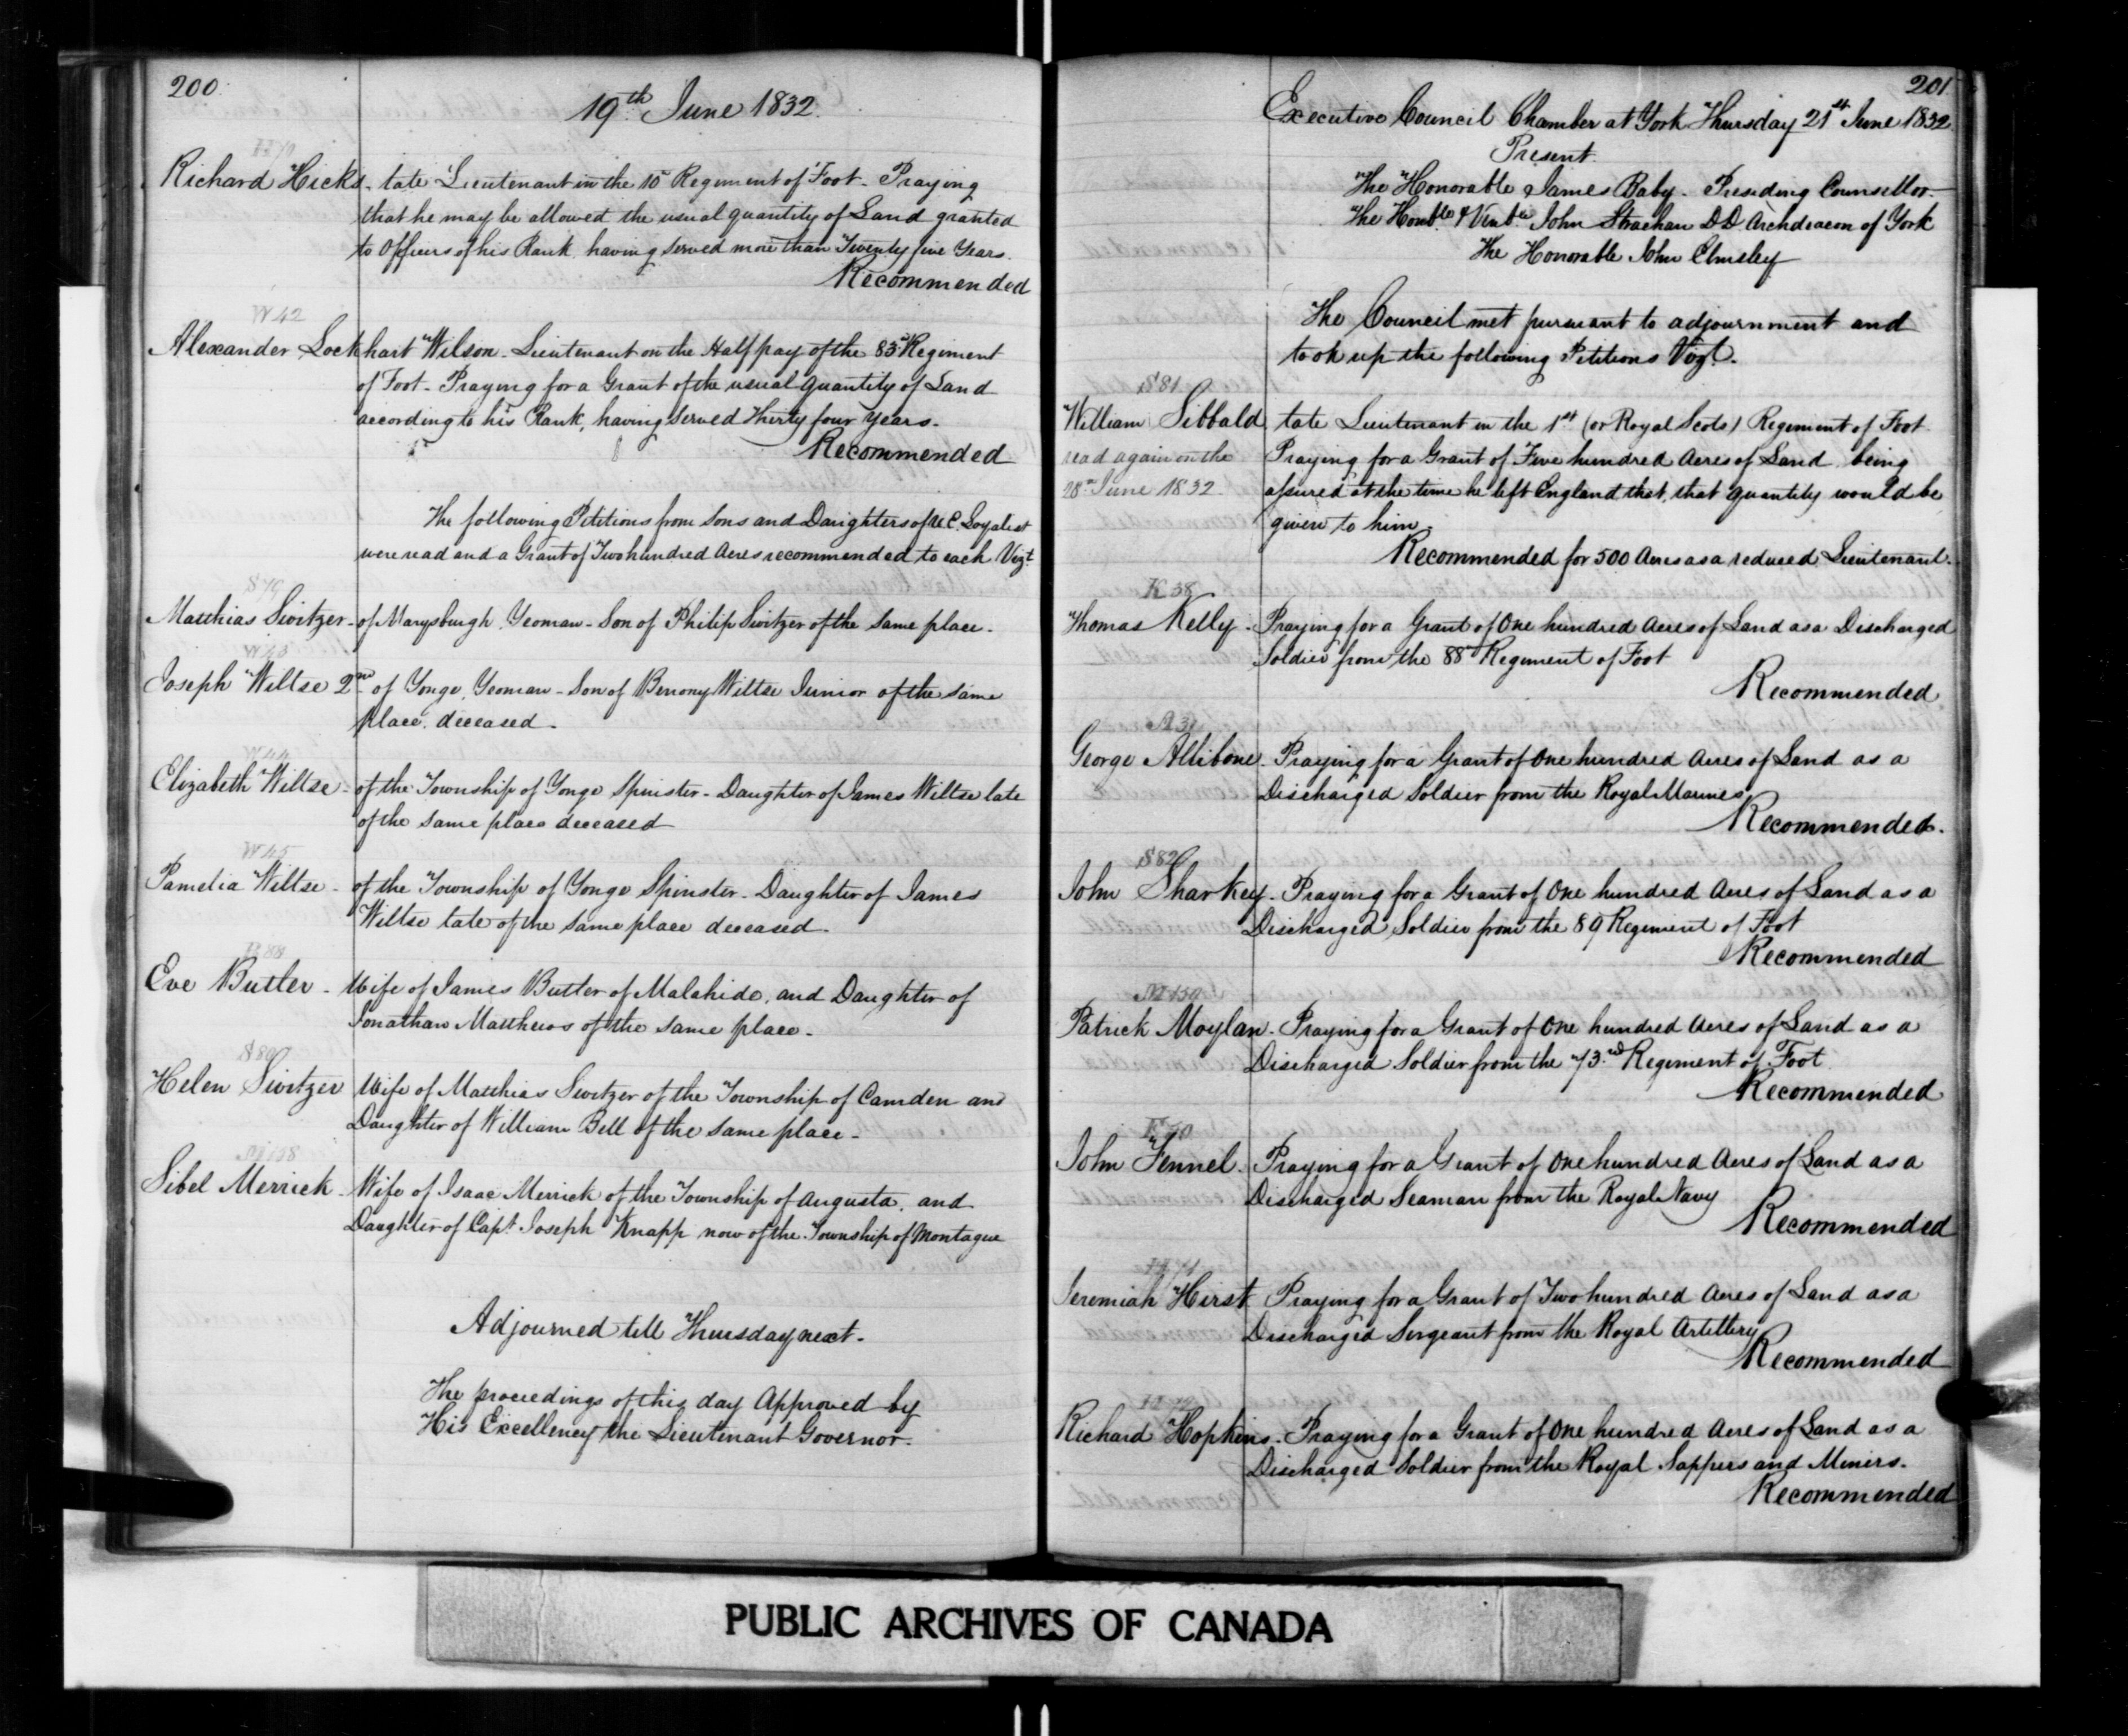 200
19th June 1832.
Richard Hicks - late Lieutenant in the 10th Regiment of Foot - Praying
that he may be allowed the usual quantity of Land granted
to Officers of his Rank, having served more than Twenty five Years.
Recommended
W 42
Alexander Lockhart Wilson - Lieutenant on the Half pay of the 83d Regiment
of Foot - Praying for a Grant of the usual quantity of Land
according to his Rank, having served Thirty four Years.
Recommended
The following Petitions from Sons and Daughters of U.E. Loyalist
were read and a Grant of Two hundred Acres recommended to each Vizt
S 79
Matthias Switzer - of Marysburgh Yeoman - Son of Philip Switzer of the same place -
W 43
Joseph Wiltse 2nd of Yonge, Yeoman - Son of Benony Wiltse Junior of the same
place, deceased -
W 44
Elizabeth Wiltse - of the Township of Yonge Spinster - Daughter of James Wiltse late
of the same place deceased
W 45
Pamelia Wiltse - of the Township of Yonge Spinster - Daughter of James
Wiltse late of the same place deceased -
B 88
Eve Butler - Wife of James Butler of Malahide, and Daughter of
Jonathan Matthews of the same place -
S 80
Helen Switzer Wife of Matthias Switzer of the Township of Camden and
Daughter of William Bell of the same place -
Sibel Merrick - Wife of Isaac Merrick of the Township of Augusta, and
Daughter of Capt. Joseph Knapp now of the Township of Montague
Adjourned till Thursday next -
The proceedings of this day Approved by
His Excellency the Lieutenant Governor -
201
Executive Council Chamber at York Thursday 21st June 1832
Present
The Honorable James Baby - Presiding Counsellor -
The Honble & Venble John Strachan DD Archdeacon of York
The Honorable John Elmsley
The Council met pursuant to adjournment and
took up the following Petitions Vizt.
S 81
William Sibbald late Lieutenant in the 1st (or Royal Scots) Regiment of Foot
read again on the Praying for a Grant of Five hundred Acres of Land, being
28th June 1832 assured at the time he left England that, that quantity would be
given to him -
Recommended for 500 Acres as a reduced Lieutenant.
K 38
Thomas Kelly - Praying for a Grant of One hundred Acres of Land as a Discharged
Soldier from the 88th Regiment of Foot
Recommended
George Allibone - Praying for a Grant of One hundred Acres of Land as a
Discharged Soldier from the Royal Marines
Recommended.
S 82
John Sharkey - Praying for a Grant of One hundred Acres of Land as a
Discharged Soldier from the 89 Regiment of Foot
Recommended
Patrick Moylan - Praying for a Grant of One hundred Acres of Land as a
Discharged Soldier from the 73rd Regiment of Foot
Recommended
John Fennel - Praying for a Grant of One hundred Acres of Land as a
Discharged Seaman from the Royal Navy
Recommended
Jeremiah Hirst Praying for a Grant of Two hundred Acres of Land as a
Discharged Sergeant from the Royal Artillery
Recommended
Richard Hopkins - Praying for a Grant of One hundred Acres of Land as a
Discharged Soldier from the Royal Sappers and Miners -
Recommended
PUBLIC ARCHIVES OF CANADA